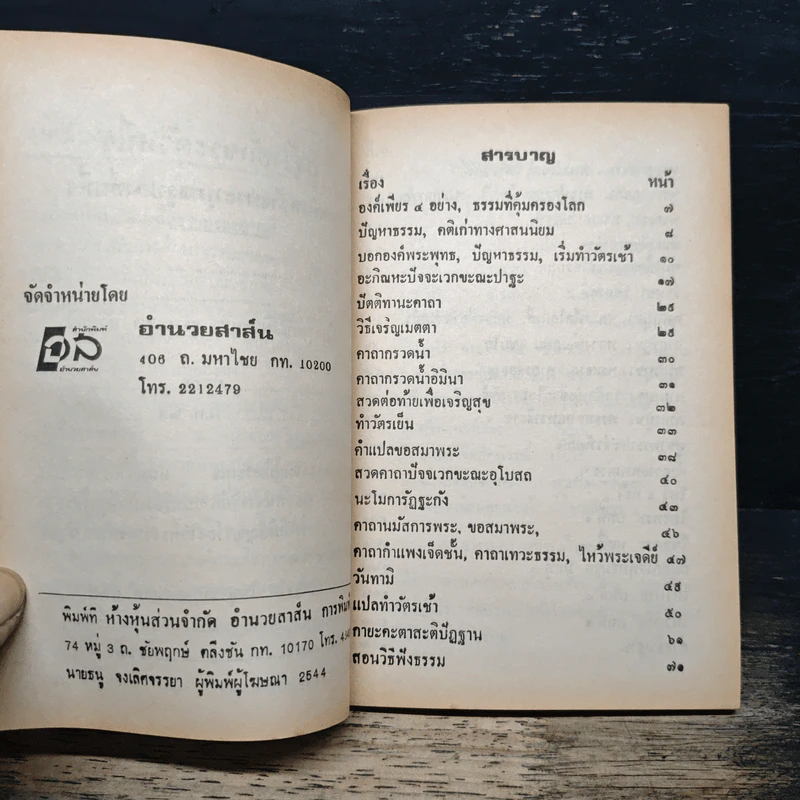 จัดจำหน่ายโดย
สำนักพิมพ์
อำนวยสาส์น
อำนวยสาส์น
406 ถ. มหาไชย กท. 10200
โทร. 2212479
พิมพ์ที่ ห้างหุ้นส่วนจำกัด อำนวยสาส์น การพิมพ์
74 หมู่ 3 ถ. ชัยพฤกษ์ ตลิ่งชัน กท. 10170 โทร.
นายธนู จงเลิศจรรยา ผู้พิมพ์ผู้โฆษณา 2544
สารบาญ
เรื่อง หน้า
องค์เพียร ๔ อย่าง, ธรรมที่คุ้มครองโลก ๗
ปัญหาธรรม, คติเก่าทางศาสนนิยม ๘
บอกองค์พระพุทธ, ปัญหาธรรม, เริ่มทำวัตรเช้า ๑๐
อะภิณหะปัจจะเวกขะณะปาฐะ ๑๗
ปัตติทานะคาถา ๒๕
วิธีเจริญเมตตา ๒๕
คาถากรวดน้ำ ๓๐
คาถากรวดน้ำอิมินา ๓๑
สวดต่อท้ายเพื่อเจริญสุข ๓๒
ทำวัตรเย็น ๓๓
คำแปลขอสมาพระ ๓๘
สวดคาถาปัจจเวกขะณะอุโบสถ ๔๐
นะโมการัฏฐะกัง ๔๓
คาถานมัสการพระ, ขอสมาพระ, ๔๖
คาถากำแพงเจ็ดชั้น, คาถาเทวะธรรม, ไหว้พระเจดีย์ ๔๗
วันทามิ ๔๙
แปลทำวัตรเช้า ๕๐
กายะคะตาสะติปัฏฐาน ๖๑
สอนวิธีฟังธรรม ๗๑